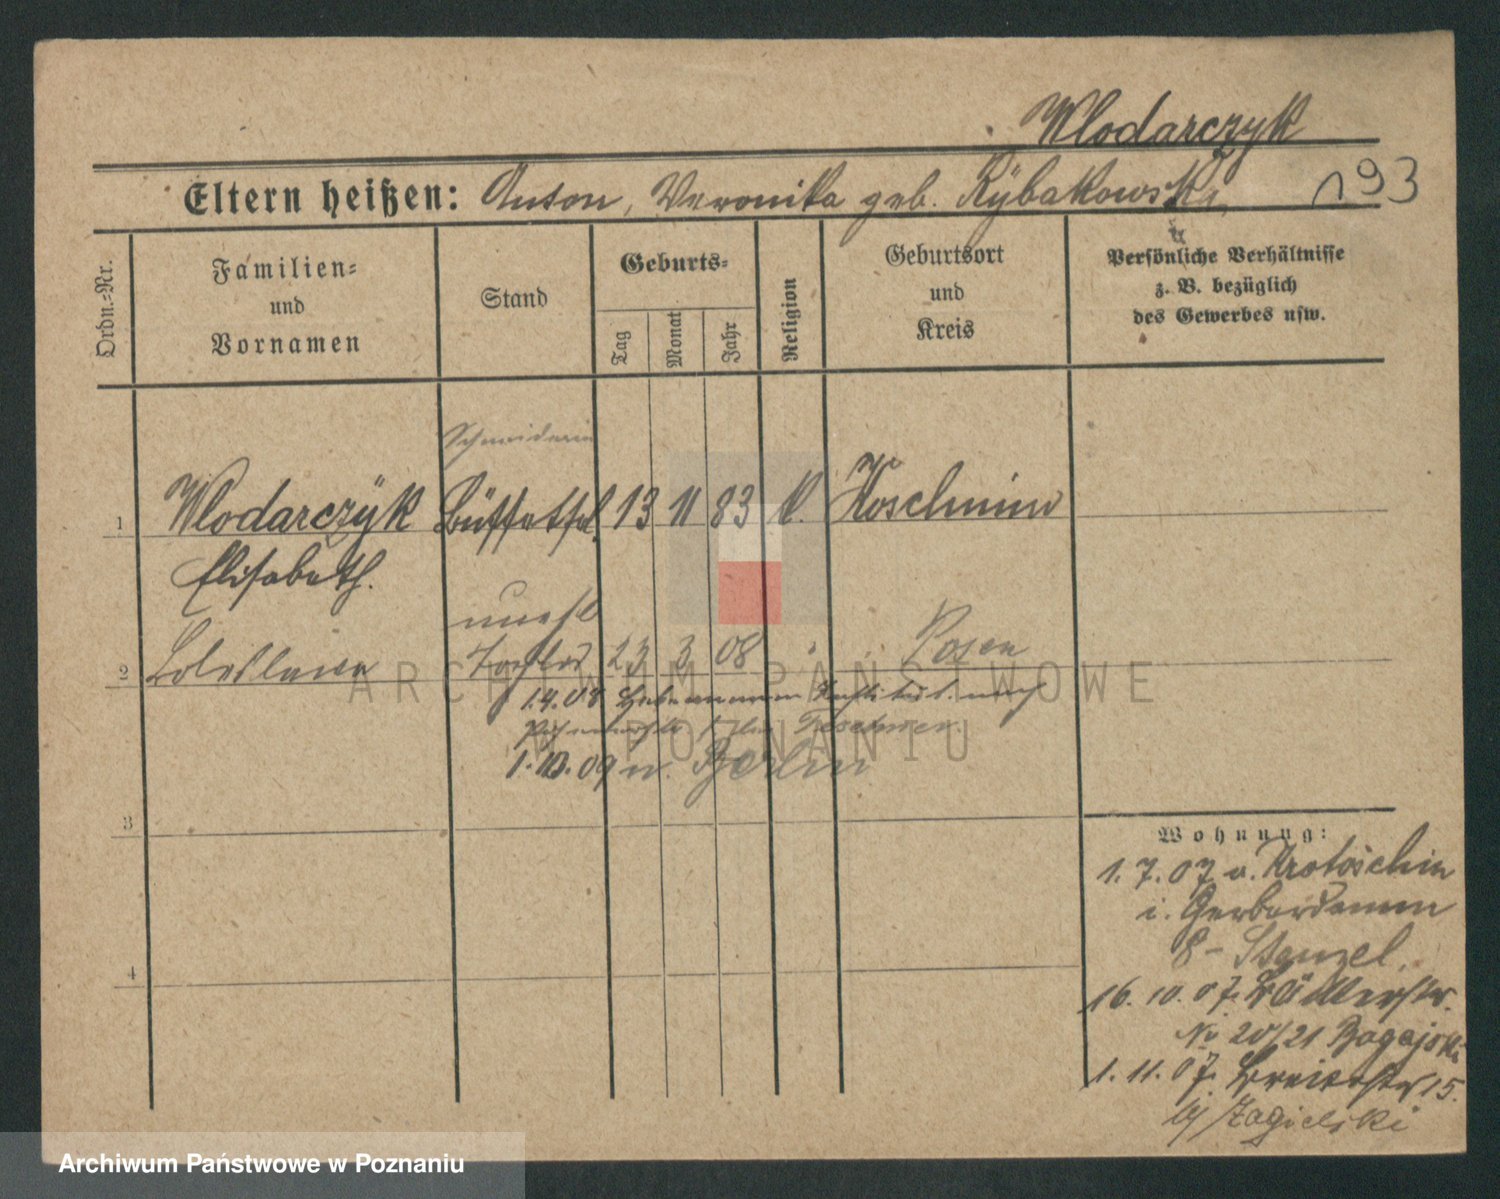 Wlodarczyk
Eltern heißen: Anton, Veronika geb. Rÿbakowska
193
Ordn.-Nr.
Familien- und Vornamen
Stand
Geburts-
Tag
Monat
Jahr
Religion
Geburtsort und Kreis
Persönliche Verhältnisse
z. B. bezüglich
des Gewerbes usw.
Schneiderin
1 Wlodarczÿk 13 11 83 k. Koschmin
Elisabeth.
unehl
2 Boleslawa Tochter 23 3 08 " Posen
1.4.08 nach
1.10.09 n. Berlin
3
4
Wohnung:
1.7.07 v. Krotoschin
i. Gerberdamm
8 - Stenzel.
16.10.07.
No 20/21 Bagajski
1.11.07. 15.
b/ Zagielski
ARCHIWUM PAŃSTWOWE
W POZNANIU
Archiwum Państwowe w Poznaniu